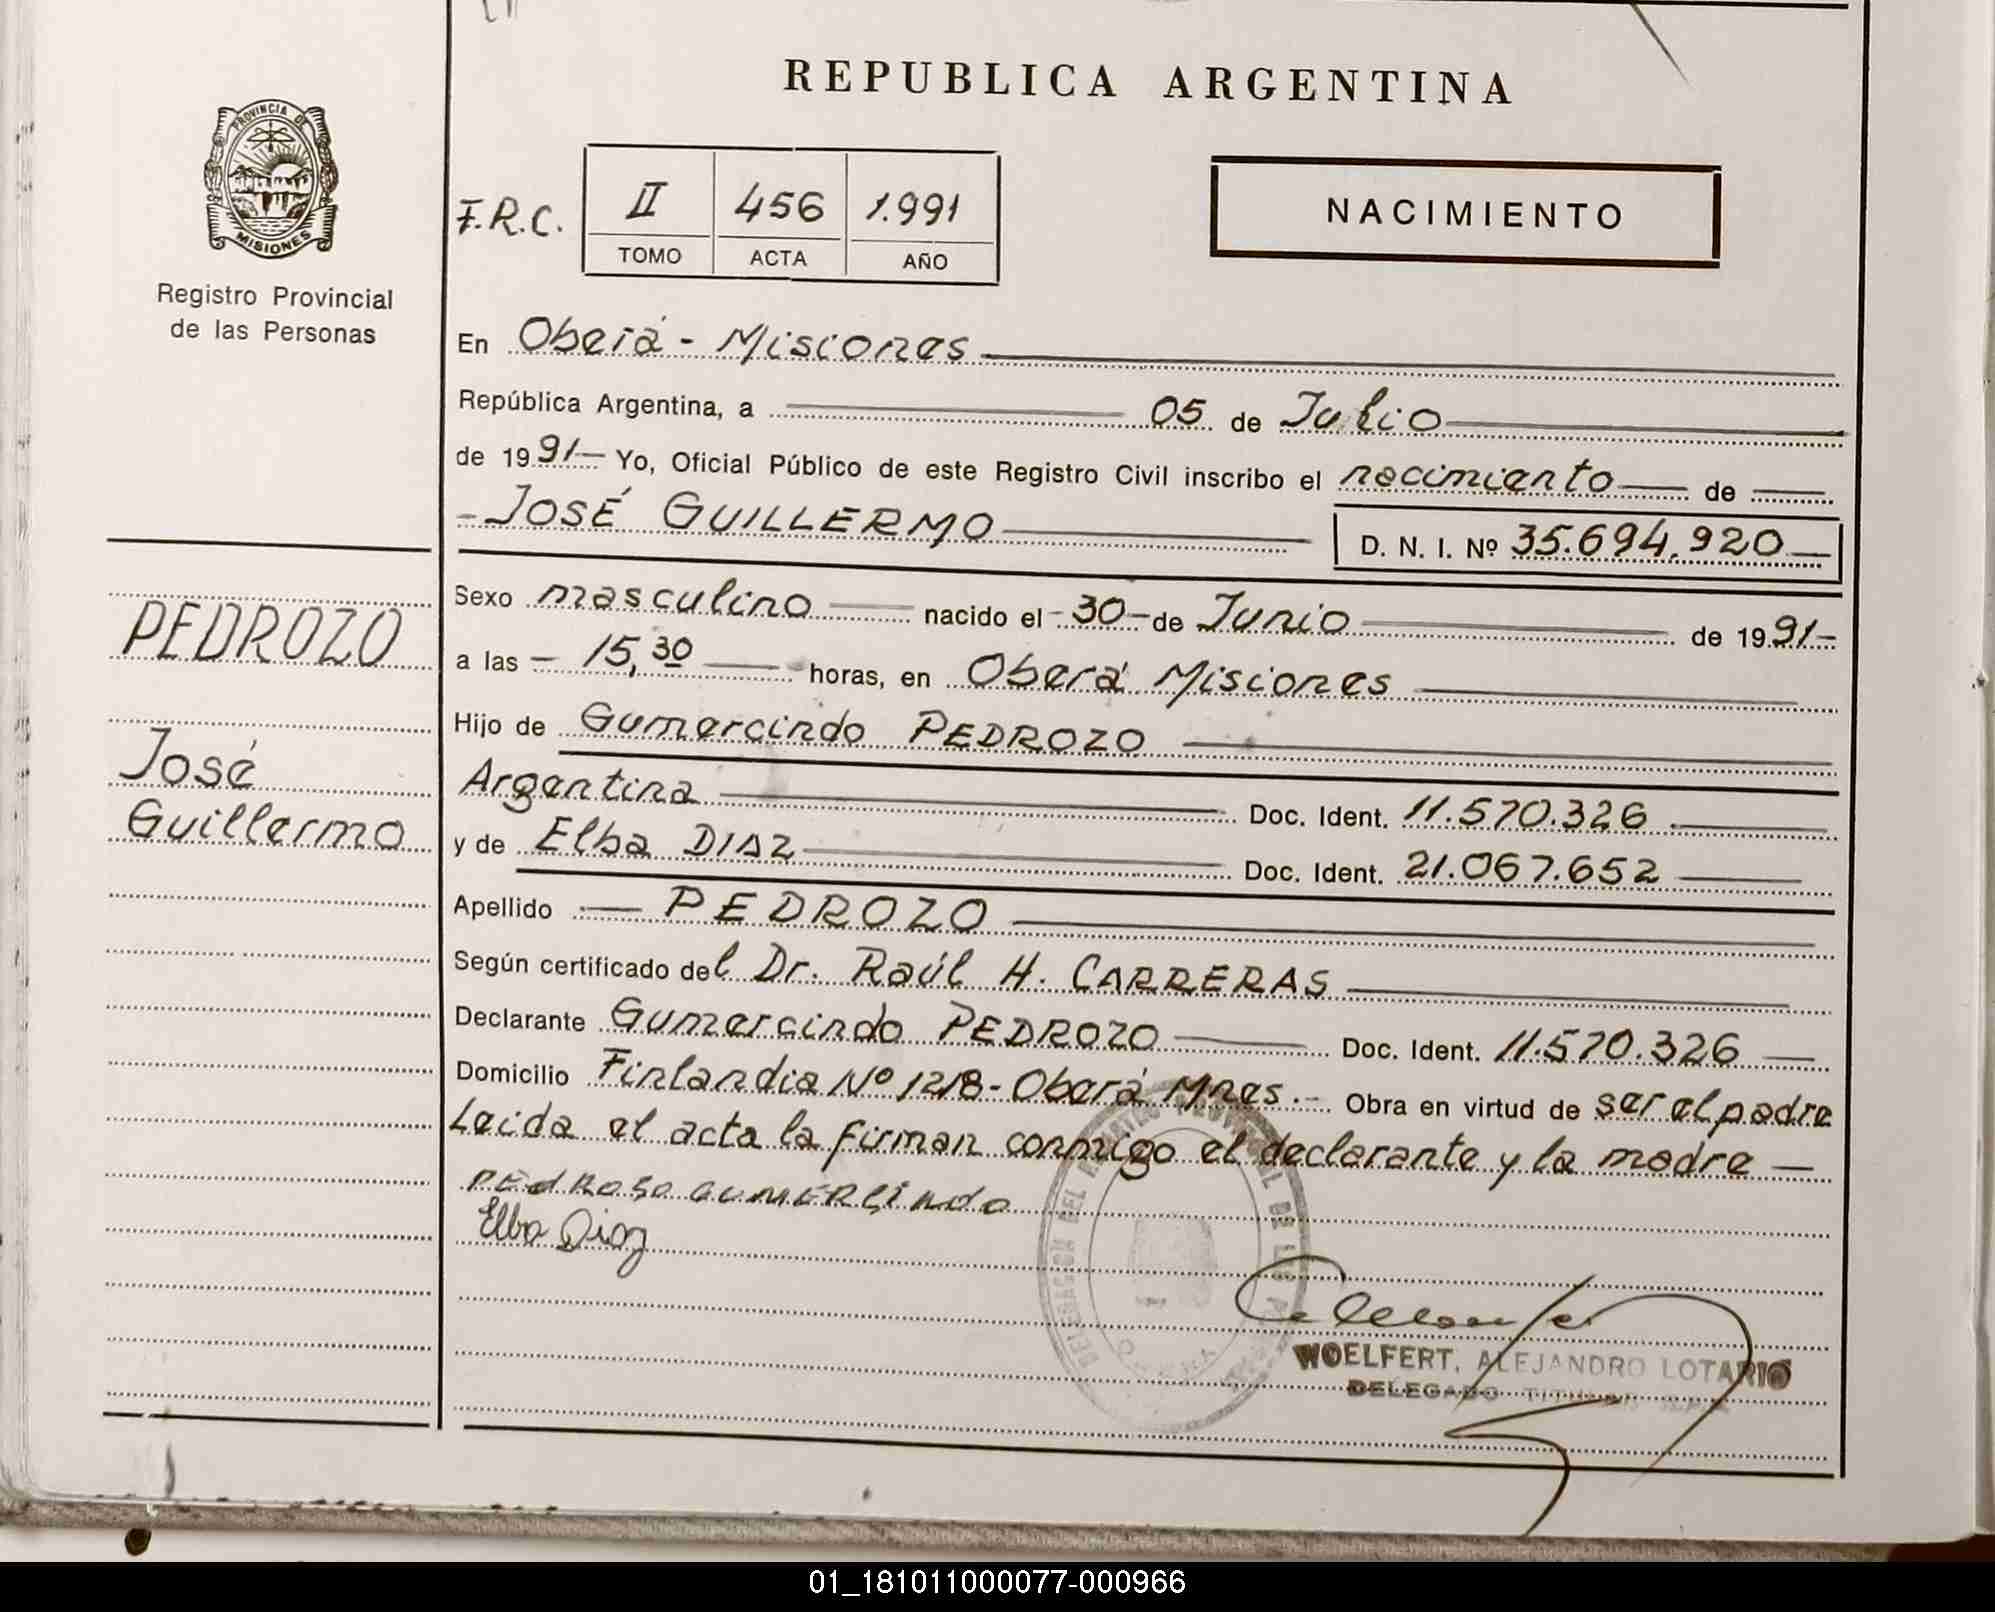 REPUBLICA ARGENTINA
PROVINCIA DE
MISIONES
Registro Provincial
de las Personas
F.R.C. II 456 1.991
TOMO ACTA AÑO
NACIMIENTO
En Oberá - Misiones
República Argentina, a 05 de Julio
de 1991- Yo, Oficial Público de este Registro Civil inscribo el nacimiento de
- JOSÉ GUILLERMO D. N. I. Nº 35.694.920
Sexo masculino nacido el - 30 - de Junio de 1991-
a las - 15,30 horas, en Oberá Misiones
Hijo de Gumercindo PEDROZO
Argentina Doc. Ident. 11.570.326
y de Elba DIAZ Doc. Ident. 21.067.652
Apellido - PEDROZO
Según certificado del Dr. Raúl H. CARRERAS
Declarante Gumercindo PEDROZO Doc. Ident. 11.570.326
Domicilio Finlandia Nº 1218 - Oberá Mnes. - Obra en virtud de ser el padre
Leida el acta la firman conmigo el declarante y la madre -
PEDROSO GUMERCINDO
Elba Diaz
PEDROZO
José
Guillermo
DELEGACION DEL REGISTRO PROVINCIAL DE LAS
WOELFERT, ALEJANDRO LOTARIO
DELEGADO TITULAR
01_181011000077-000966